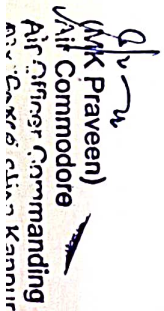 (MK Praveen)
Air Commodore
Air Officer Commanding
Kanpur